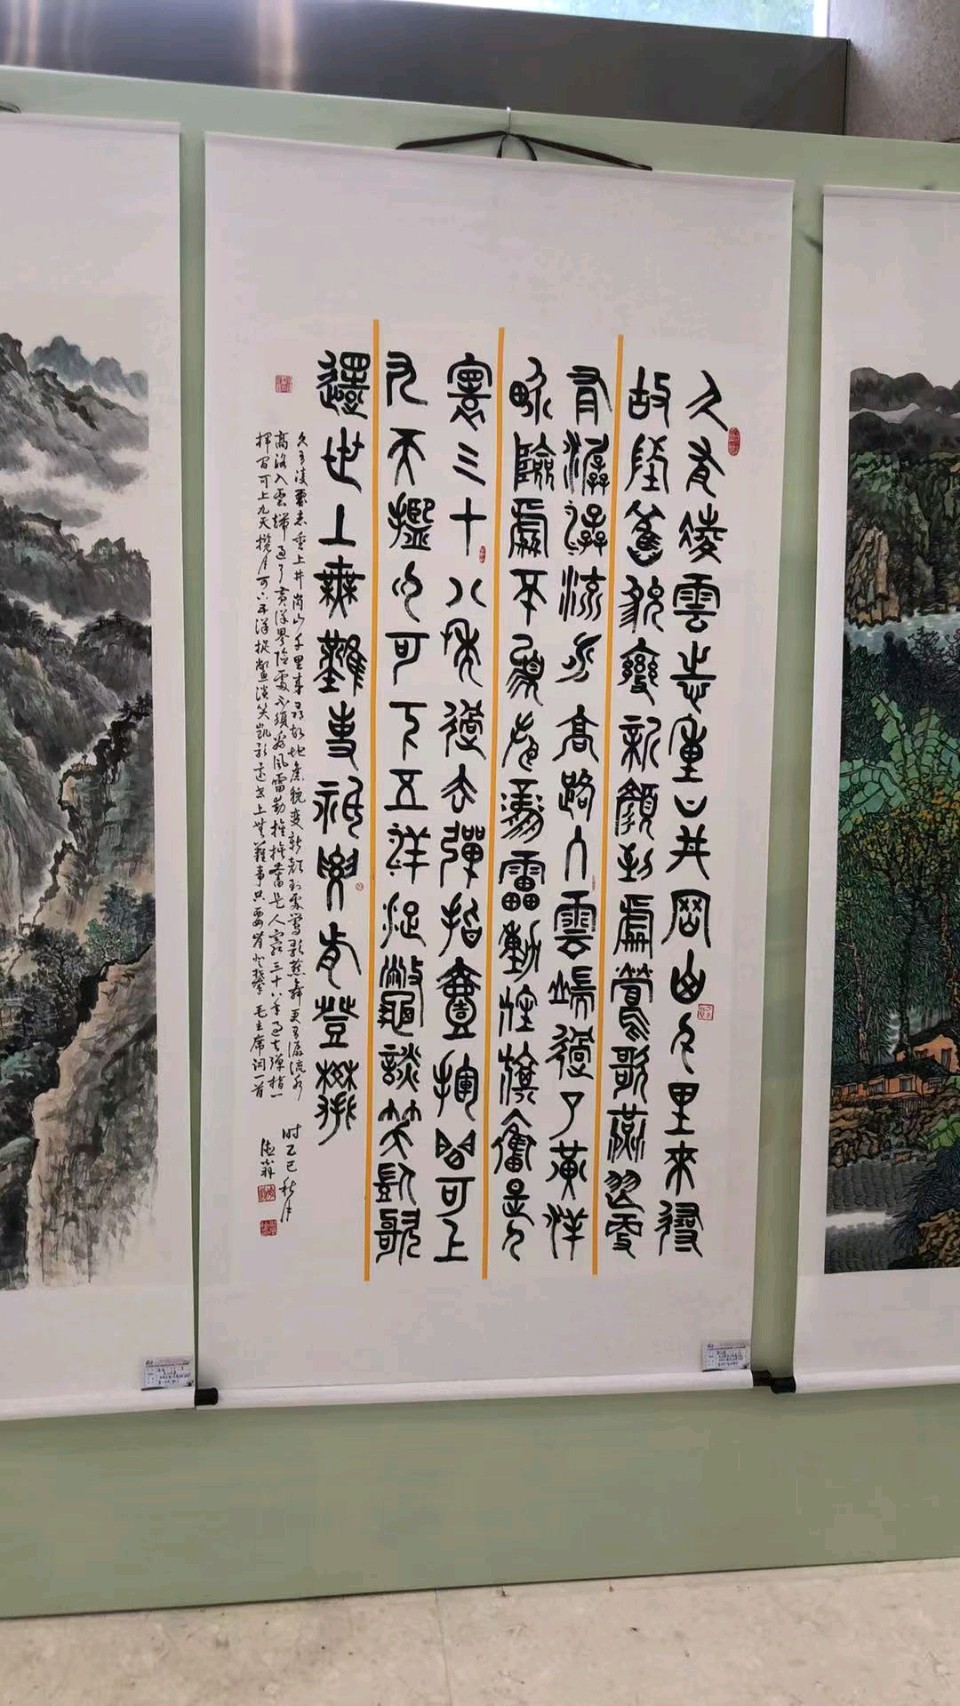 久有凌雲志重上井岡山千里來尋
故地舊貌變新顔到處鶯歌燕舞更
有潺潺流水高路入雲端過了黄洋
界險處不須看風雷動旌旗奮是人
寰三十八年過去彈指壹揮間可上
九天攬月可下五洋捉鱉談笑凱歌
還世上無難事祇要肯登攀
久有凌雲志重上井崗山千里来尋故地舊貌變新顔到處鶯歌燕舞更有潺流水
高路入雲端過了黄洋界險處不須看風雷動旌旗奮是人寰三十八年過去彈指一
揮間可上九天攬月可下五洋捉鱉談笑凱歌還世上無難事只要肯登攀毛主席词一首
时乙巳秋月